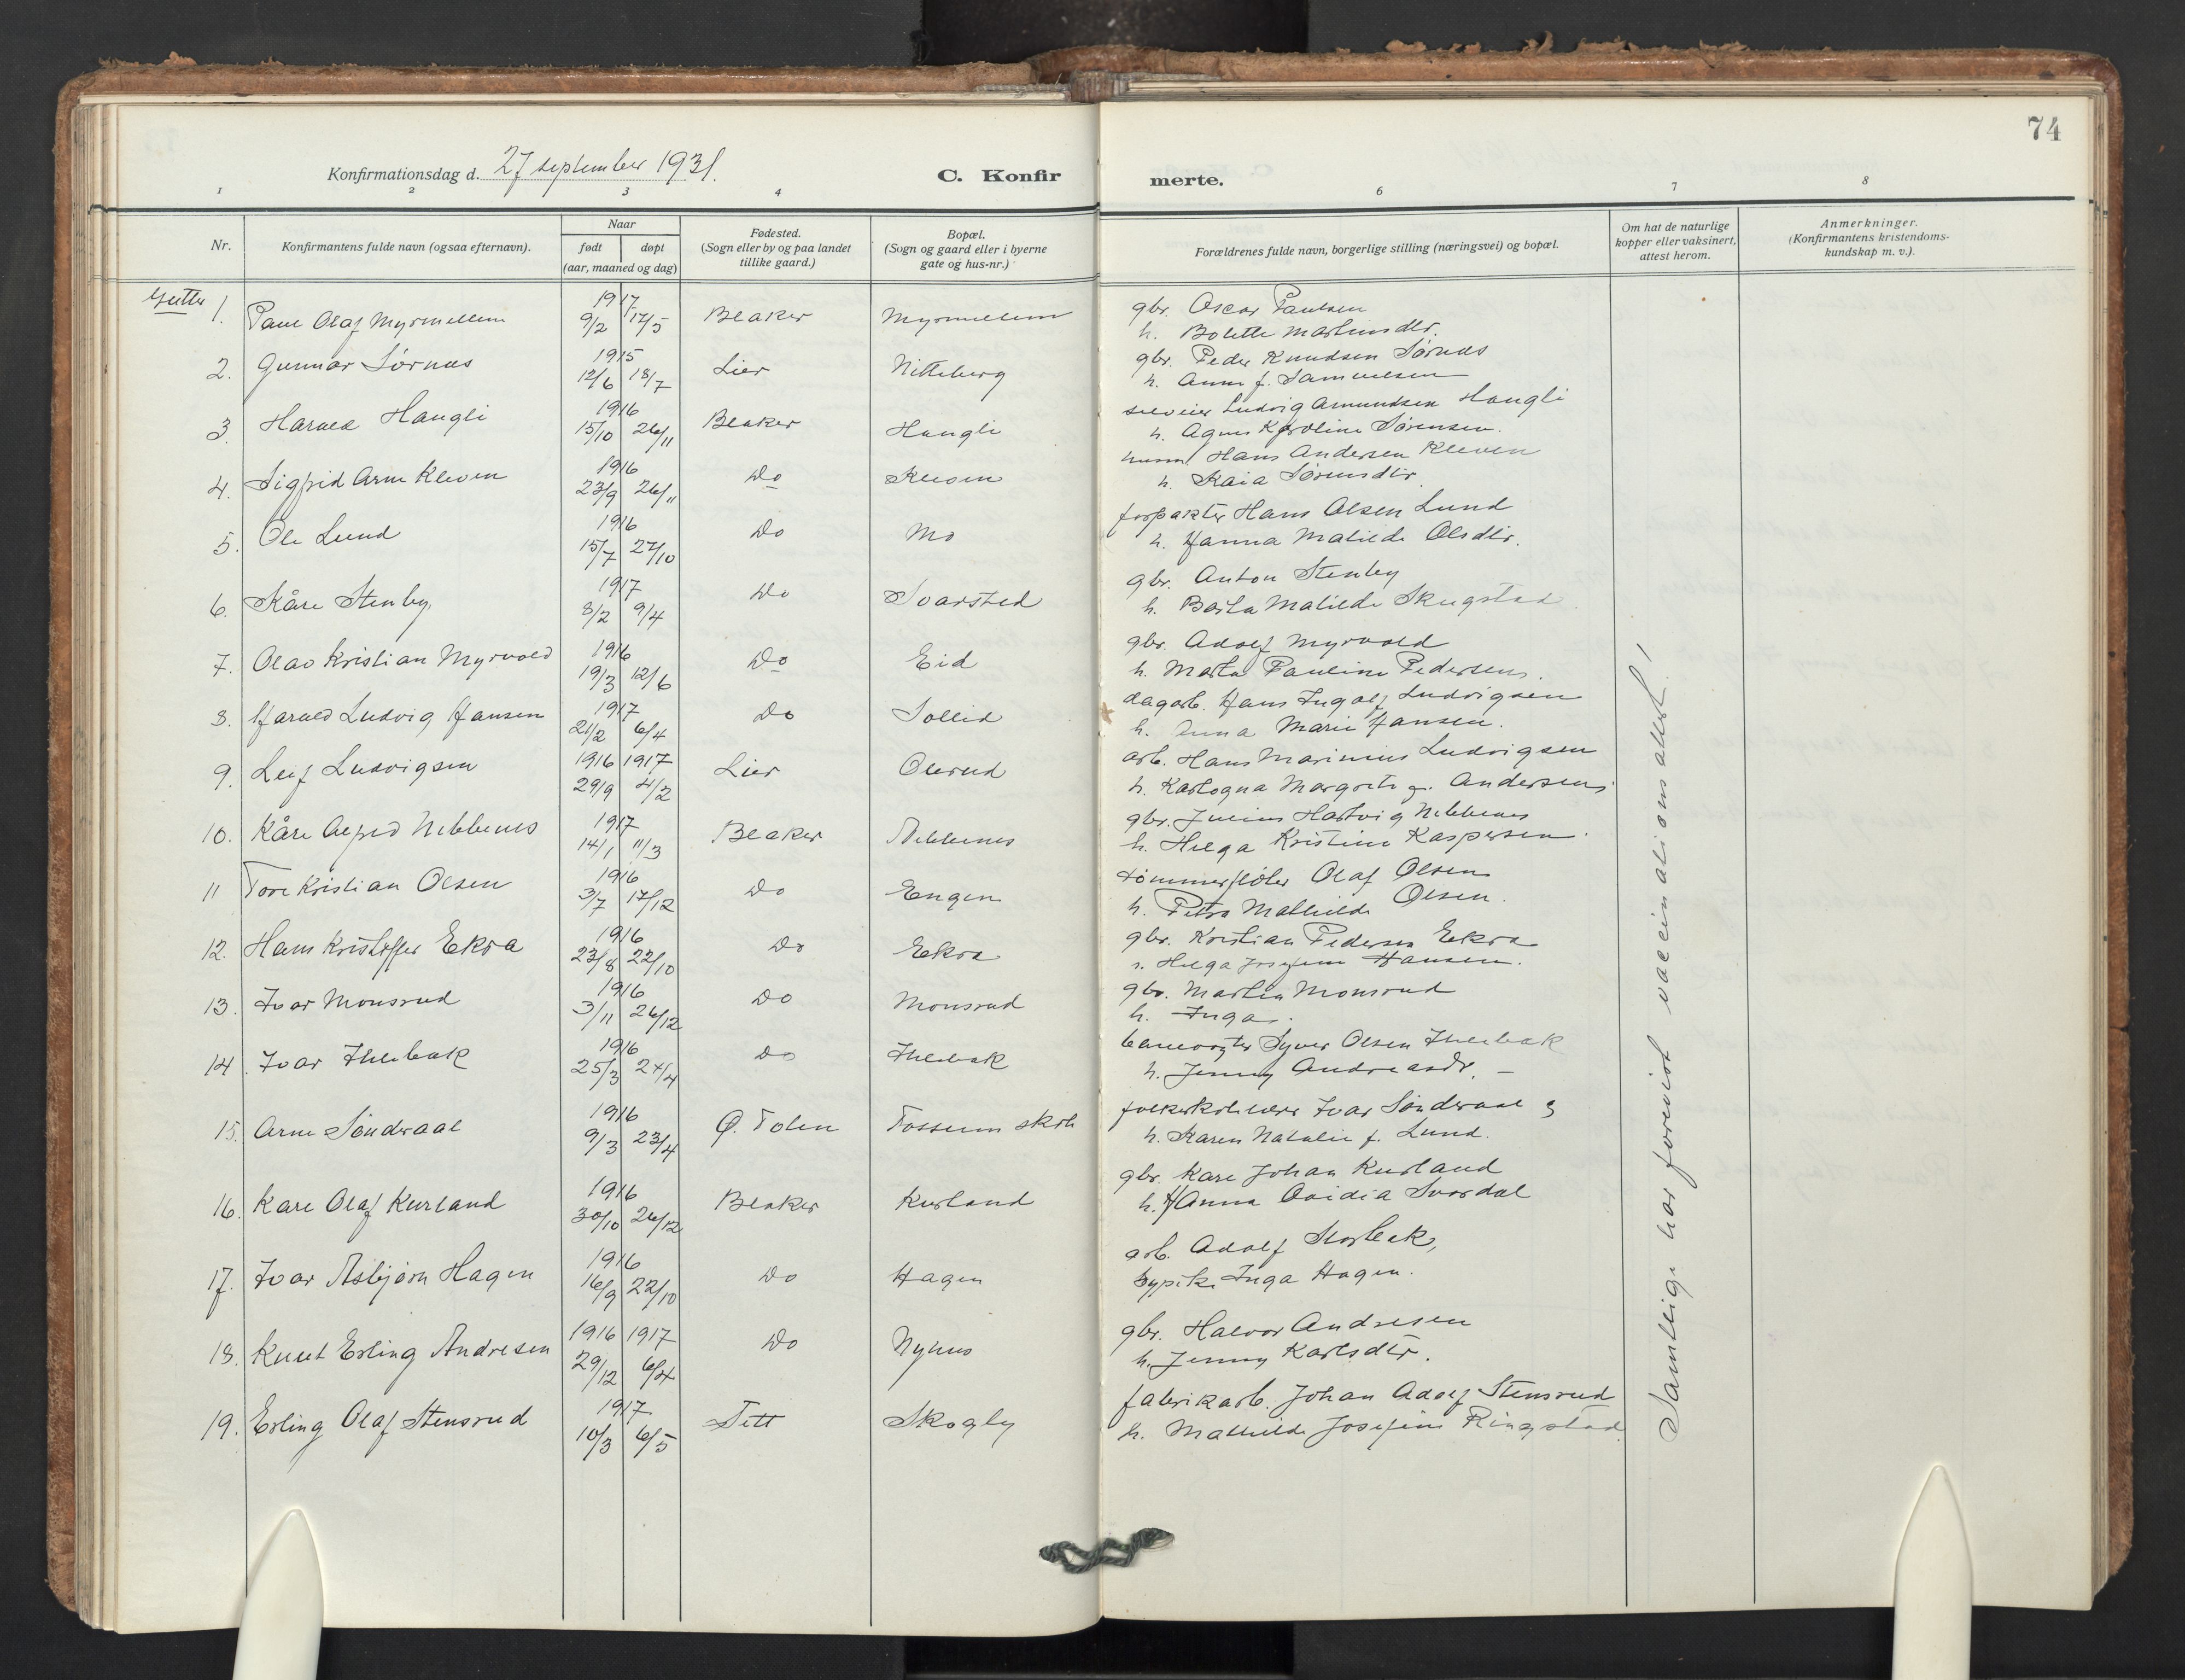 74
Konfirmationsdag d. 27 september 1931.
C. Konfir
merte.
1 2 3 4 6 7 8
Nr.
Konfirmantens fulde navn (ogsaa efternavn).
Naar
født døpt
(aar, maaned og dag)
Fødested.
(Sogn eller by og paa landet
tillike gaard.)
Bopæl.
(Sogn og gaard eller i byerne
gate og hus-nr.)
Forældrenes fulde navn, borgerlige stilling (næringsvei) og bopæl.
Om hat de naturlige
kopper eller vaksinert,
attest herom.
Anmerkninger.
(Konfirmantens kristendoms-
kundskap m. v.).
Gutter
1. Paul Olaf Myrmellem 1917 9/2 17/5 Blaker Myrmellem
gbr. Oscar Paulsen
h. Bolette Martinsdtr.
2. Gunnar Sørnes 1915 12/6 18/7 Lier Nitteberg
gbr. Peder Knudsen Sørnes
h. Anna f. Samuelsen
3. Harald Haugli 1916 15/10 26/11 Blaker Haugli
selveier Ludvig Amundsen Haugli
h. Agnes Karoline Sørensen.
4. Sigfrid Arne Kleven 1916 23/9 26/11 Do Kleven
husm. Hans Andersen Kleven
h. Kaia Sørensdtr.
5. Ole Lund 1916 15/7 27/10 Do Mo
forpakter Hans Olsen Lund
h. Hanna Matilde Olsdtr.
6. Kåre Stenby 1917 8/2 9/4 Do Svarstad
gbr. Anton Stenby
h. Berta Matilde Skugstad
7. Olav Kristian Myrvold 1916 19/3 12/6 Do Eid
gbr. Adolf Myrvold
h. Marta Pauline Pedersen.
8. Harald Ludvig Hansen 1917 21/2 6/4 Do Sollid
dagarb. Hans Ingolf Ludvigsen
h. Anna Marie Hansen.
9. Leif Ludvigsen 1916 1917 29/9 4/2 Lier Olerud
arb. Hans Marinius Ludvigsen
h. Karlogna Margrete g. Andersen
10. Kåre Alfred Nebbenes 1917 14/1 11/3 Blaker Nebbenes
gbr. Julius Hartvig Nebbenes
h. Helga Kristine Kaspersen.
11 Tore Kristian Olsen 1916 3/7 17/12 Do Engen
tømmerfløter Olaf Olsen
h. Petra Mathilde Olsen.
12. Hans Kristoffer Ekra 1916 23/8 22/10 Do Ekra
gbr. Kristian Pedersen Ekra
h. Helga Josefine Hansen.
13. Ivar Monsrud 1916 3/11 26/12 Do Monsrud
gbr. Martin Monsrud
h. Inga.
14. Ivar Ihlebæk 1916 25/3 24/4 Do Ihlebæk
banevogter Syver Olsen Ihlebæk
h. Jenny Andreasdr. —
15. Arne Søndraal 1916 9/3 23/4 Ø. Toten Fossum skole
folkeskolelærer Ivar Søndraal og
h. Karen Natalie f. Lund.
16. Kåre Olaf Kurland 1916 30/10 26/12 Blaker Kurland
gbr. Kåre Johan Kurland
h. Hanna Ovidia Svordal
17. Ivar Asbjørn Hagen 1916 16/9 22/10 Do Hagen
arb. Adolf Slorbæk,
sypike Inga Hagen.
18. Knut Erling Andresen 1916 1917 29/12 6/4 Do Nynes
gbr. Halvor Andresen
h. Jenny Karlsdtr.
19. Erling Olaf Stensrud 1917 10/3 6/5 Fett Skogly
fabrikarb. Johan Adolf Stensrud
h. Mathilde Josefine Ringstad.
Samtlige har forevist vaccinationsattest!